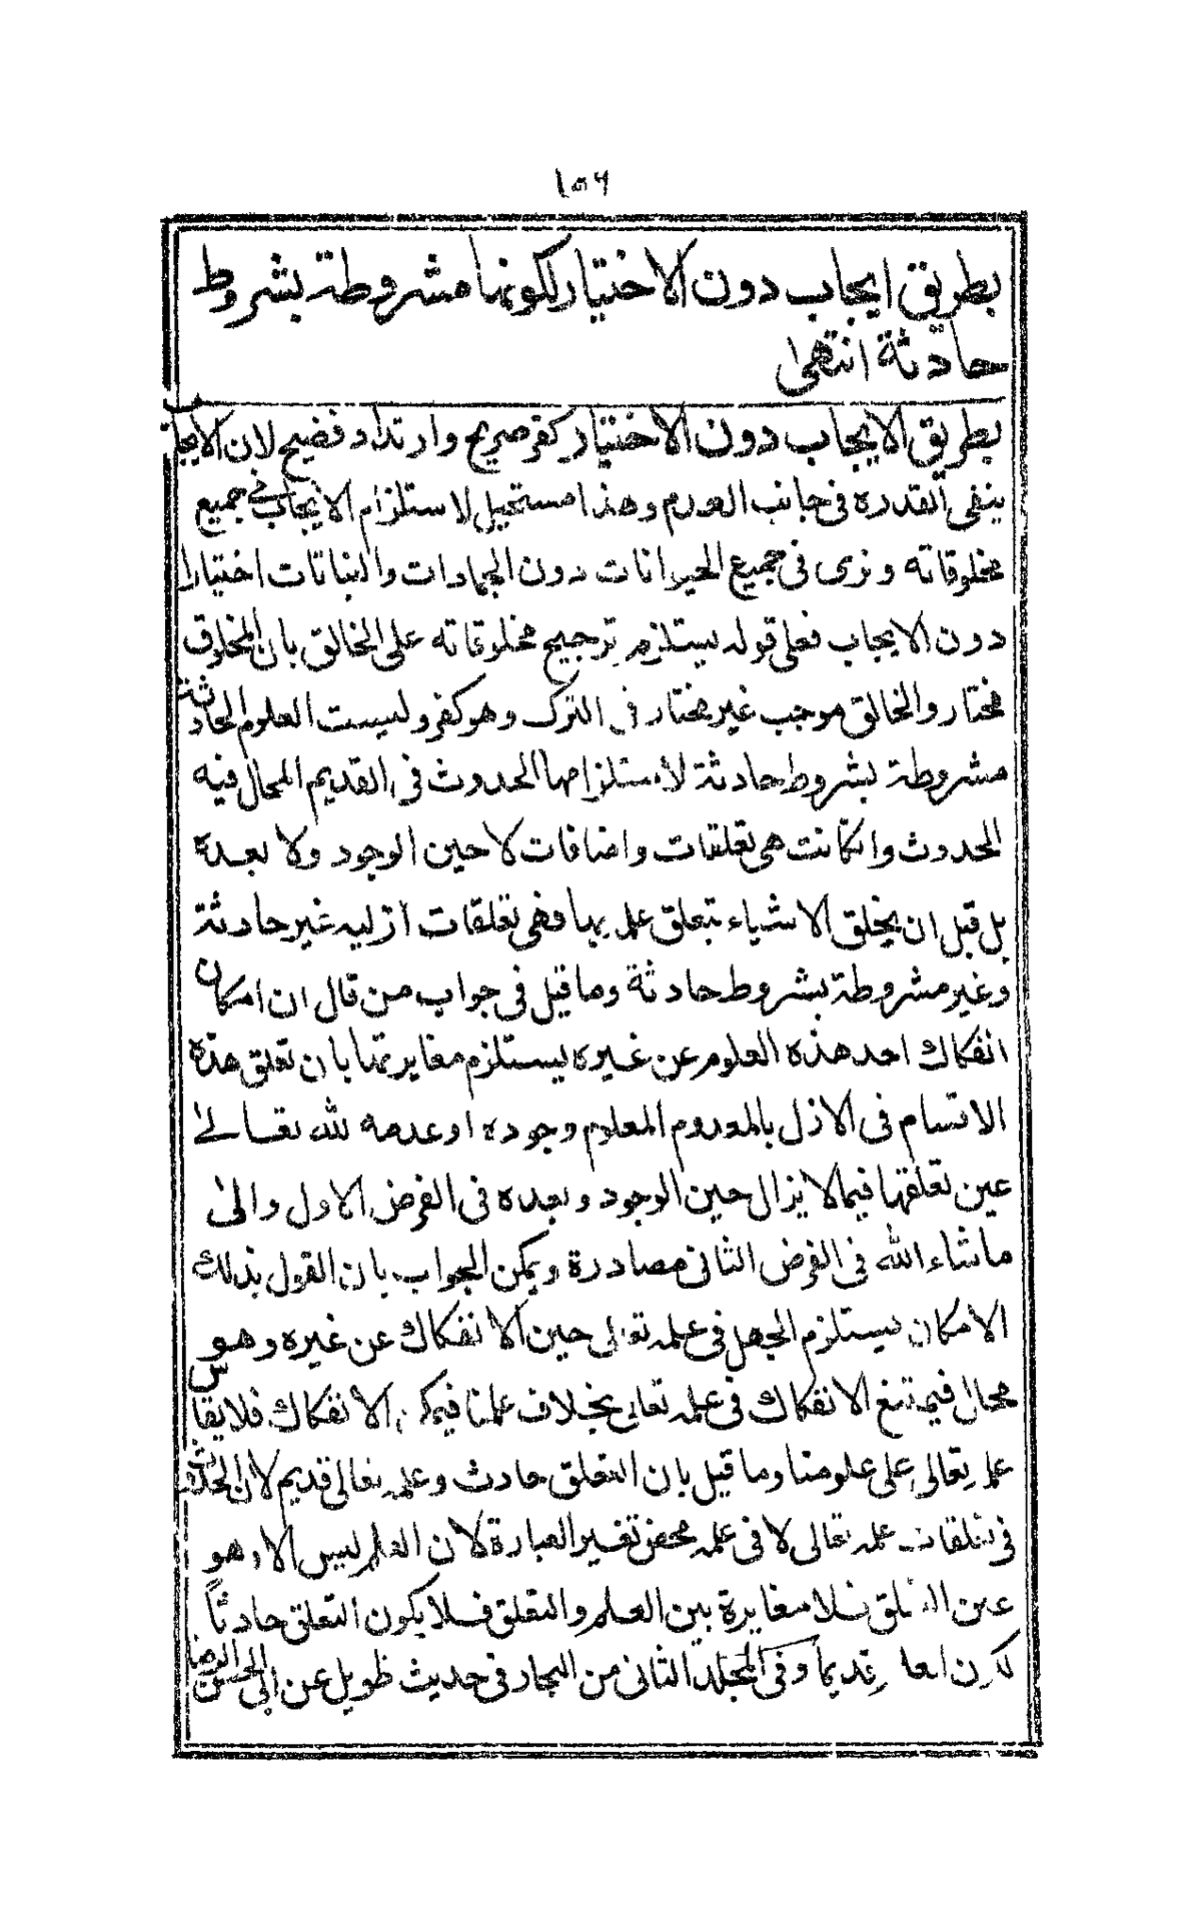 ١٥٦
بطريق ايجاب دون الاختيار لكونها مشروطة بشروط
حادثة انتهى
بطريق الايجاب دون الاختيار كفر صريح وارتداد فضيح لان الايجاب
ينفي القدرة في جانب العدم وهذا مستحيل لاستلزام الايجاب في جميع
مخلوقاته ونرى في جميع الحيوانات دون الجمادات والنباتات اختيارا
دون الايجاب فعلى قوله يستلزم ترجيح مخلوقاته على الخالق بان المخلوق
مختار والخالق موجب غير مختار في الترك وهو كفر وليست العلوم الحادثة
مشروطة بشروط حادثة لاستلزامها الحدوث في القديم المحال فيه
الحدوث وانكانت هي تعلقات واضافات لا حين الوجود ولا بعده
بل قبل ان يخلق الاشياء تتعلق علمه بها فهي تعلقات ازليه غير حادثة
وغير مشروطة بشروط حادثة وما قيل في جواب من قال ان امكان
انفكاك احد هذه العلوم عن غيره يستلزم مغايرتها بان تعلق هذه
الاقسام في الازل بالمعدوم المعلوم وجوده او عدمه لله تعالى
عين تعلقها فيما لا يزال حين الوجود وبعده في الفرض الاول والى
ماشاء الله في الفرض الثاني مصادرة ويمكن الجواب بان القول بذلك
الامكان يستلزم الجهل في علمه تعالى حين الانفكاك عن غيره وهو
محال فيمتنع الانفكاك في علمه تعالى بخلاف علمنا فيمكن الانفكاك فلا يقاس
علمه تعالى على علومنا وما قيل بان التعلق حادث وعلمه تعالى قديم لان الحدوث
في تعلقات علمه تعالى لا في علمه محض تغيير العبارة لان العلم ليس الا وهو
عين التعلق فلا مغايرة بين العلم والتعلق فلا يكون التعلق حادثاً
لكون العلم قديماً وفي المجلد الثاني من البحار في حديث طويل عن ابي الحسن الرضا